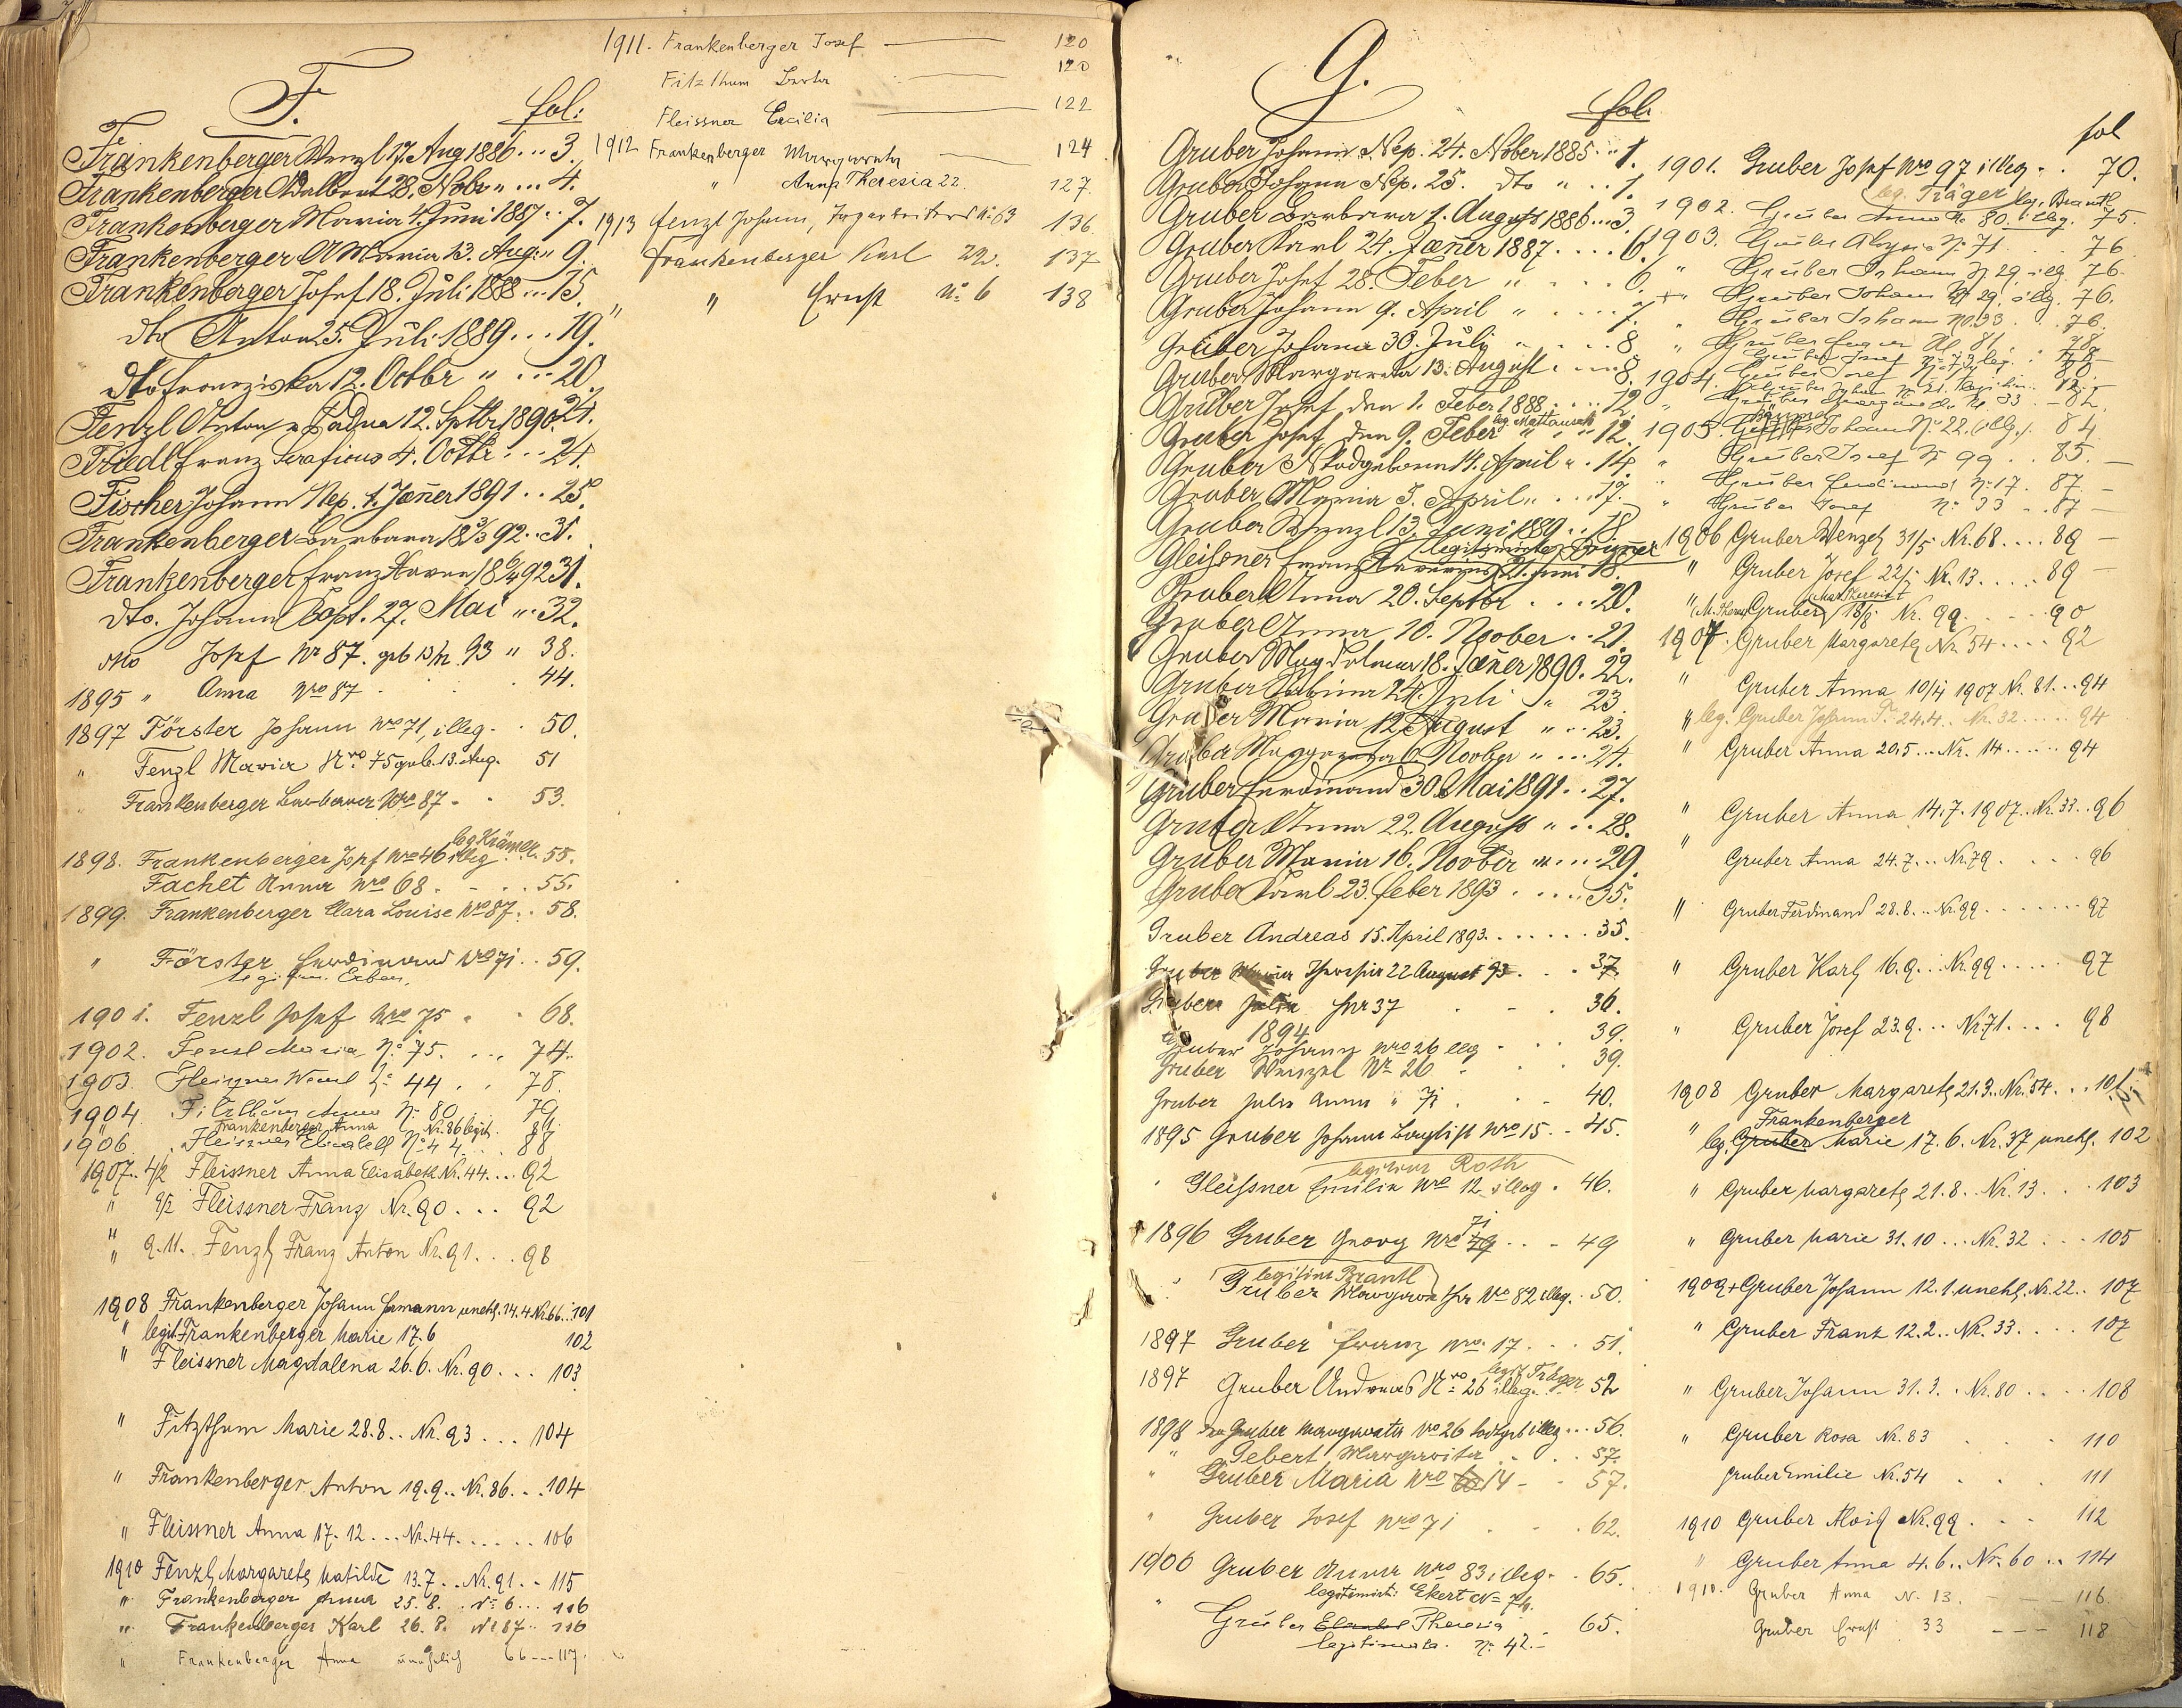 F.
fol:
Frankenberger Wenzl 17. Aug 1886 ... 3.
Frankenberger Adalbert 28. Nobr " ... 4.
Frankenberger Maria 4. Juni 1887 .. 7.
Frankenberger A Maria 13. Aug. " 9.
Frankenberger Josef 18. Juli 1888 ... 15.
dto Anton 25. Juli 1889 ... 19.
dto Franziska 12. Octbr " ... 20.
Fenzl Anton v Padua 12. Septbr 1890. 24.
Friedl Franz Seraficus 4. Octbr ... 24.
Fischer Johann Nep. 1. Jäner 1891 .. 25.
Frankenberger Barbara 18 3/3 92 .. 31.
Frankenberger Franz Xaver 18 6/4 92 31.
dto. Johann Bapt. 27. Mai " .. 32.
dto Josef No 87. geb 13/12 93 " 38.
1895 " Anna Nro 87 . . . 44.
1897 Förster Johann Nro 71, illeg. . 50.
" Fenzl Maria Nro. 75 geb. 13. Aug. 51
Frankenberger Barbara Nro 87 . . 53.
leg Krämer
1898. Frankenberger Josef Nro 46 illeg . 55.
Fachet Anna Nro 68 . - . . 55.
1899. Frankenberger Clara Louise Nro 87 . . 58.
" Förster Ferdinand Nro 71 . . 59.
legitim. Erben.
1901. Fenzl Josef Nro 75 . . 68.
1902. Fenzl Maria No 75. ... 74.
1903. Fleissner Wenzl No 44 . . 78.
1904. Fitzthum Anna No 80 79.
Frankenberger Anna Nr. 86 legit. 81
1906. Fleissner Elisabeth No 44 ... 88
1907. 4/2 Fleissner Anna Elisabeth Nr. 44 ... 92
" 9/2 Fleissner Franz Nr. 90 ... 92
" 9.11. Fenzl Franz Anton Nr. 91 ... 98
1908 Frankenberger Johann Hermann unehl. 14.4 Nr 66 .. 101
" legit Frankenberger Marie 17.6 102
" Fleissner Magdalena 26.6. Nr. 90 ... 103
" Fitzthum Marie 28.8 .. Nr. 93 ... 104
" Frankenberger Anton 19.9 .. Nr. 86 ... 104
" Fleissner Anna 17.12 ... Nr. 44 ..... 106
1910 Fenzl Margareth Matilde 13.7 .. Nr. 91 .. 115
" Frankenberger Anna 25.8. . No 6 ... 116
" Frankenberger Karl 26.8. No 87 .. 116
" Frankenberger Anna unehelich 66 --- 117.
1911. Frankenberger Josef 120
Fitzthum Berta 120
Fleissner Cäcilia 122
1912 Frankenberger Margareta 124
" Anna Theresia 22. 127.
1913 Fenzl Johann, No 63 136.
Frankenberger Karl 22. 137
" " Ernst No 6 138
G.
fol.
Gruber Johann Nep. 24. Nober 1885 .. 1.
Gruber Johann Nep. 25. dto " .. 1.
Gruber Barbara 1. August 1886 ... 3.
Gruber Karl 24. Jäner 1887 .... 6.
Gruber Josef 28. Feber " ... 6.
Gruber Johann 9. April " .... 7.
Gruber Johann 30. July " ... 8
Gruber Margareta 13. August .... 8.
Gruber Josef den 1. Feber 1888 .... 12.
leg. Mattausch
Gruber Josef den 9. Feber " ... 12.
Gruber N Todgeboren 14. April " . 14.
Gruber Maria 3. April " ... 17.
Gruber Wenzl 13. Juni 1889 .. 18.
legitimirter
Gleißner Franz Xaverius 21. Juni 18.
Gruber Anna 20. Septbr .... 20.
Gruber Anna 10. Noober .. 21.
Gruber Magdalena 18. Jäner 1890. 22.
Gruber Sabina 24. Juli " 23.
Gruber Maria 12. August " .. 23.
Gruber Margareta 6. Noober " ... 24.
Gruber Ferdinand 30. Mai 1891 .. 27.
Gruber Anna 22. August " .. 28.
Gruber Maria 16. Noober " ... 29.
Gruber Karl 23. Feber 1893 ..... 35.
Gruber Andreas 15. April 1893 ...... 35.
Gruber Maria Theresia 22 August 93 . . . 37.
Gruber Julia Nr 37 . . . 36.
1894
Gruber Johann Nro 26 illeg . . . 39.
Gruber Wenzel Nr 26 . . . 39.
Gruber Julia Anna " 71 . . . 40.
1895 Gruber Johann Baptist Nro 15. . 45.
legitim Roth
" Gleißner Emilia Nro 12 illeg . 46.
1896 Gruber Georg Nro 71 . . . 49
legitim Brantl
" Gruber Margaretha Nro 82 illeg. . 50.
1897 Gruber Franz Nro. 17 . . . 51.
legit Träger
1897 Gruber Andreas Nro 26 illeg. 52
1898 Gruber Margareta Nro 26 todtgeb illeg ... 56.
" Gebert Margarita . . . 57.
" Gruber Maria Nro 14 - . 57.
" Gruber Josef Nro 71 . . . 62.
1900 Gruber Anna Nro 83 illeg. . 65.
legitimirt Ekert No 74.
" Gruber Theresia . 65.
legitimata. No 42.
fol
1901. Gruber Josef Nro 97 illeg . . 70.
leg. Träger leg. Brantl
1902. Gruber Anna No 80 illeg. 75.
1903. Gruber Aloysia No 71 . . 76
" Gruber Johann No 29 illeg. 76.
+ " Gruber Johann No 29. illeg. 76.
" Gruber Johann No. 33 . . 76.
" Gruber 81 . . 78
Gruber Josef No 73 leg. 78
1904. Gruber Josef 80
Gruber Johann No 21. 82
" Gruber Margareta No 33 - 82.
1905. Johann No 22. illeg. 84
" Gruber Josef No 99 . . 85. -
" Gruber Ferdinand No 17. 87 -
" Gruber Josef No 33 . 87 -
1906 Gruber Wenzel 31/5 Nr. 68 .... 89 -
" Gruber Josef 22/ Nr. 13 ..... 89 -
" M. Theres Gruber 18/8 Nr. 99 .... 90
1907. Gruber Margareth Nr 54 .... 92
" Gruber Anna 10/4 1907 Nr. 81 ... 94
" leg. Gruber Johann 24.4. Nr. 32 ..... 94
" Gruber Anna 20.5 ... Nr. 14 ...... 94
" Gruber Anna 14.7. 1907. Nr. 33 .. 96
" Gruber Anna 24.7 ... Nr. 79 .... 96
" Gruber Ferdinand 28.8 .. Nr. 99 ....... 97
" Gruber Karl 16.9 ... Nr. 99 ..... 97
" Gruber Josef 23.9 ... Nr 71 .... 98
1908 Gruber Margareth 21.3 .. Nr. 54 ... 101
Frankenberger
" leg. Gruber Marie 17.6. Nr. 37 unehl. 102
" Gruber Margareth 21.8. . Nr. 13 ... 103
" Gruber Marie 31.10 ... Nr. 32 ... 105
1909 + Gruber Johann 12.1. unehl. Nr. 22 .. 107
" Gruber Franz 12.2 .. Nr. 33 .... 107
" Gruber Johann 31.3. . Nr. 80 .... 108
" Gruber Rosa Nr. 83 . . . 110
Gruber Emilie Nr. 54 . . . 111
1910 Gruber Alois Nr. 99 . . . 112
" Gruber Anna 4.6 .. Nr. 60 .. 114
1910. Gruber Anna N. 13. - - - 116
Gruber Ernst 33 - - - 118